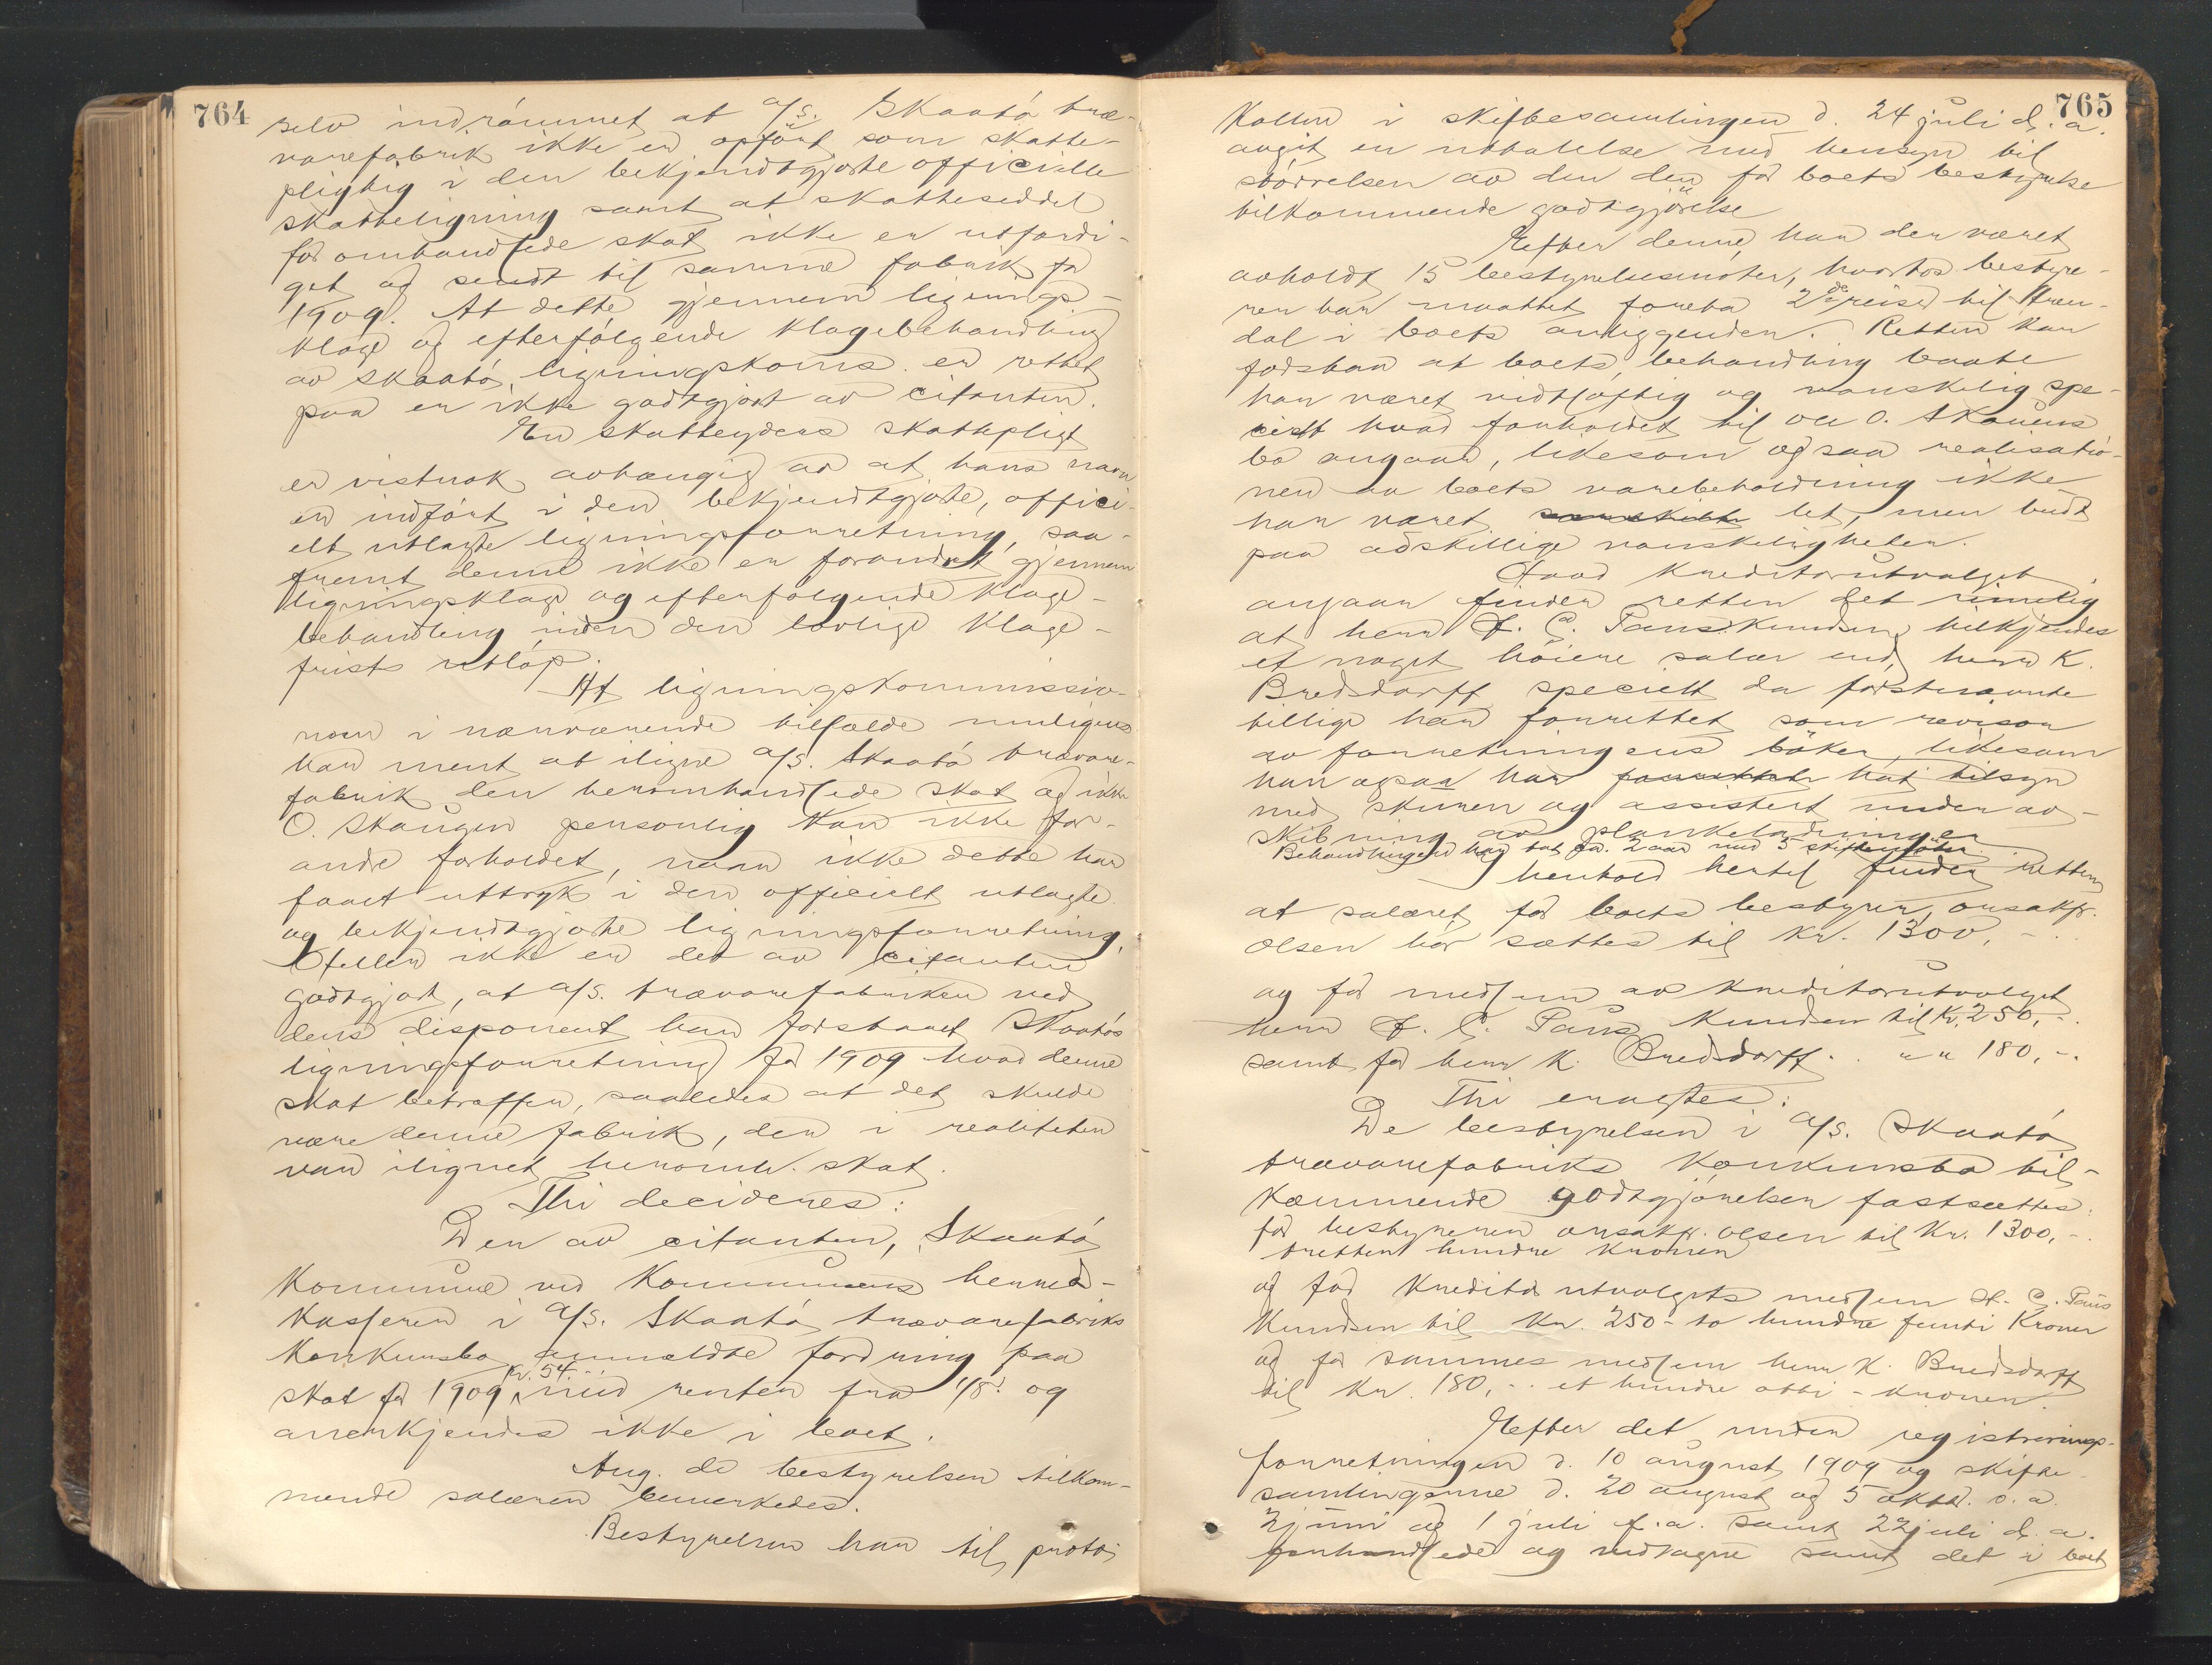 764
selv indrømmet at a/s. Skaatø træ-
varefabrik ikke er opført som skatte-
pligtig i den bekjendtgjorte officielle
skatteligning samt at skatteseddel
for omhandlede skat ikke er utfærdi-
get og sendt til samme fabrik for
1909. At dette gjennem lignings-
klage og efterfølgende klagebehandling
av Skaatø ligningskoms. er rettet
paa er ikke godtgjort av citanten.
En skatteyders skattepligt
er vistnok avhængig av at hans navn
er indført i den bekjendtgjorte, offici-
elt utlagte ligningsforretning, saa-
fremt denne ikke er forandret gjennem
ligningsklage og efterfølgende klage-
behandling inden den lovlige klage-
frists utløp.
At ligningskommissio-
nen i nærværende tilfælde muligens
har ment at iligne a/s. Skaatø trævare-
fabrik den heromhandlede skat og ikke
O. Skaugen personlig kan ikke for-
andre forholdet, naar ikke dette har
faaet uttryk i den officielt utlagte
og bekjendtgjorte ligningsforretning.
Heller ikke er det av citanten
godtgjort, at a/s. trævarefabriken ved
dens disponent har forstaaet Skaatøs
ligningsforretning for 1909 hvad denne
skat betræffer, saaledes at det skulde
være denne fabrik, der i realiteten
var ilignet heromh. skat.
Thi decideres:
Den av citanten, Skaatø
kommune ved kommunens herreds-
kasserer i a/s. Skaatø trævarefabriks
konkursbo anmeldte fordring paa
skat for 1909 kr. 54.- med renter fra 1/8. og
anerkjendes ikke i boet.
Ang. de bestyrelsen tilkom-
mende salærer bemerkedes.
Bestyrelsen har til proto-
765
kollen i skiftesamlingen d. 24 juli d. a.
avgit en uttalelse med hensyn til
størrelsen av den den for boets bestyrelse
tilkommende godtgjørelse
Efter denne har der været
avholdt 15 bestyrelsesmøter, hvorhos bestyre-
ren har maattet foreta 2de reiser til Aren-
dal i boets anliggender. Retten kan
forstaa at boets behandling baate
har været vidtløftig og vanskelig spe-
cielt hvad forholdet til Ole O. Skauens
bo angaar, likesom ogsaa realisatio-
nen av boets varebeholdning ikke
har været let, men budt
paa adskillige vanskeligheter.
Hvad kreditorutvalget
angaar finder retten det rimelig
at herr H. C. Paus Knudsen tilkjendes
et noget høiere salær end herr K.
Bredsdorff specielt da førstnævnte
tillige har forrettet som revisor
av forretningens bøker, likesom
han ogsaa har hat tilsyn
med skuren og assistert under av-
skibning av planketadningen
Behandlingen har tat ca. 2 aar med 5 skiftemøter.
I henhold hertil finder retten
at salæret for boets bestyrer, orsakf.
Olsen bør sættes til kr. 1300,-.
og for medlem av kreditorutvalget
herr H. C. Paus Knudsen til kr. 250,-.
samt for herr K. Bredsdorff. . " " 180,-.
Thi eragtes:
De bestyrelsen i a/s. Skaatø
trævarefabriks konkursbo til-
kommende godtgjørelser fastsættes:
for bestyreren orsakf. Olsen til kr. 1300,-.
tretten hundre kroner
og for kreditorutvalgets medlem H. C. Paus
Knudsen til kr. 250.- to hundre femti kroner
og for sammes medlem herr K. Bredsdorff
til kr. 180,-. et hundre otti - kroner.
Efter det under registrerings-
forretningen d. 10 august 1909 og skifte-
samlingerne d. 20 august og 5 oktbr. s. a.
2 juni og 1 juli f. a. samt 22 juli d. a.
forhandlede og vedtagne samt det i boet